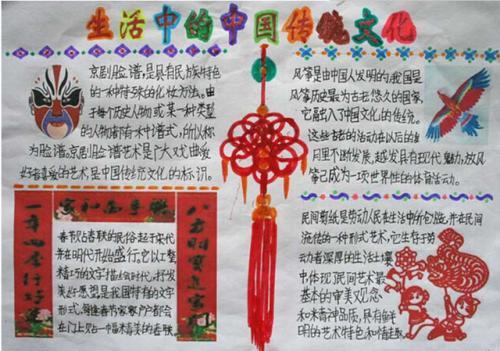 生活中的中国传统文化
京剧脸谱,是具有民族特色
的一种特殊的化妆方法。由
于每个历史人物或某一种类型
的人物都有一种谱式,所以称
为脸谱。京剧脸谱艺术是广大戏曲爱
好者喜爱的艺术是中国传统文化的标识。
风筝是由中国人发明的,我国是
风筝历史最为古老悠久的国家,
它融入了中国文化的传统。
这些古老的活动在以后的
月里不断发展,越发具有现代魅力,放风
筝已成为一项世界性的体育活动。
春节贴春联的民俗起于宋代
并在明代开始盛行,它以工整
精巧的文字描绘时代,抒发
美好愿望是我国特有的文字
形式。每逢春节家家户户都会
在门上贴一幅精美的春联。
一年四季行好运
八方财宝进家门
民间剪纸是劳动人民在生活中所创造,并在民间
流传的一种形式艺术,它生存于劳
动者深厚的生活土壤
中体现了民间艺术最
基本的审美观念
和精神品质,具有鲜
明的艺术特色和情趣